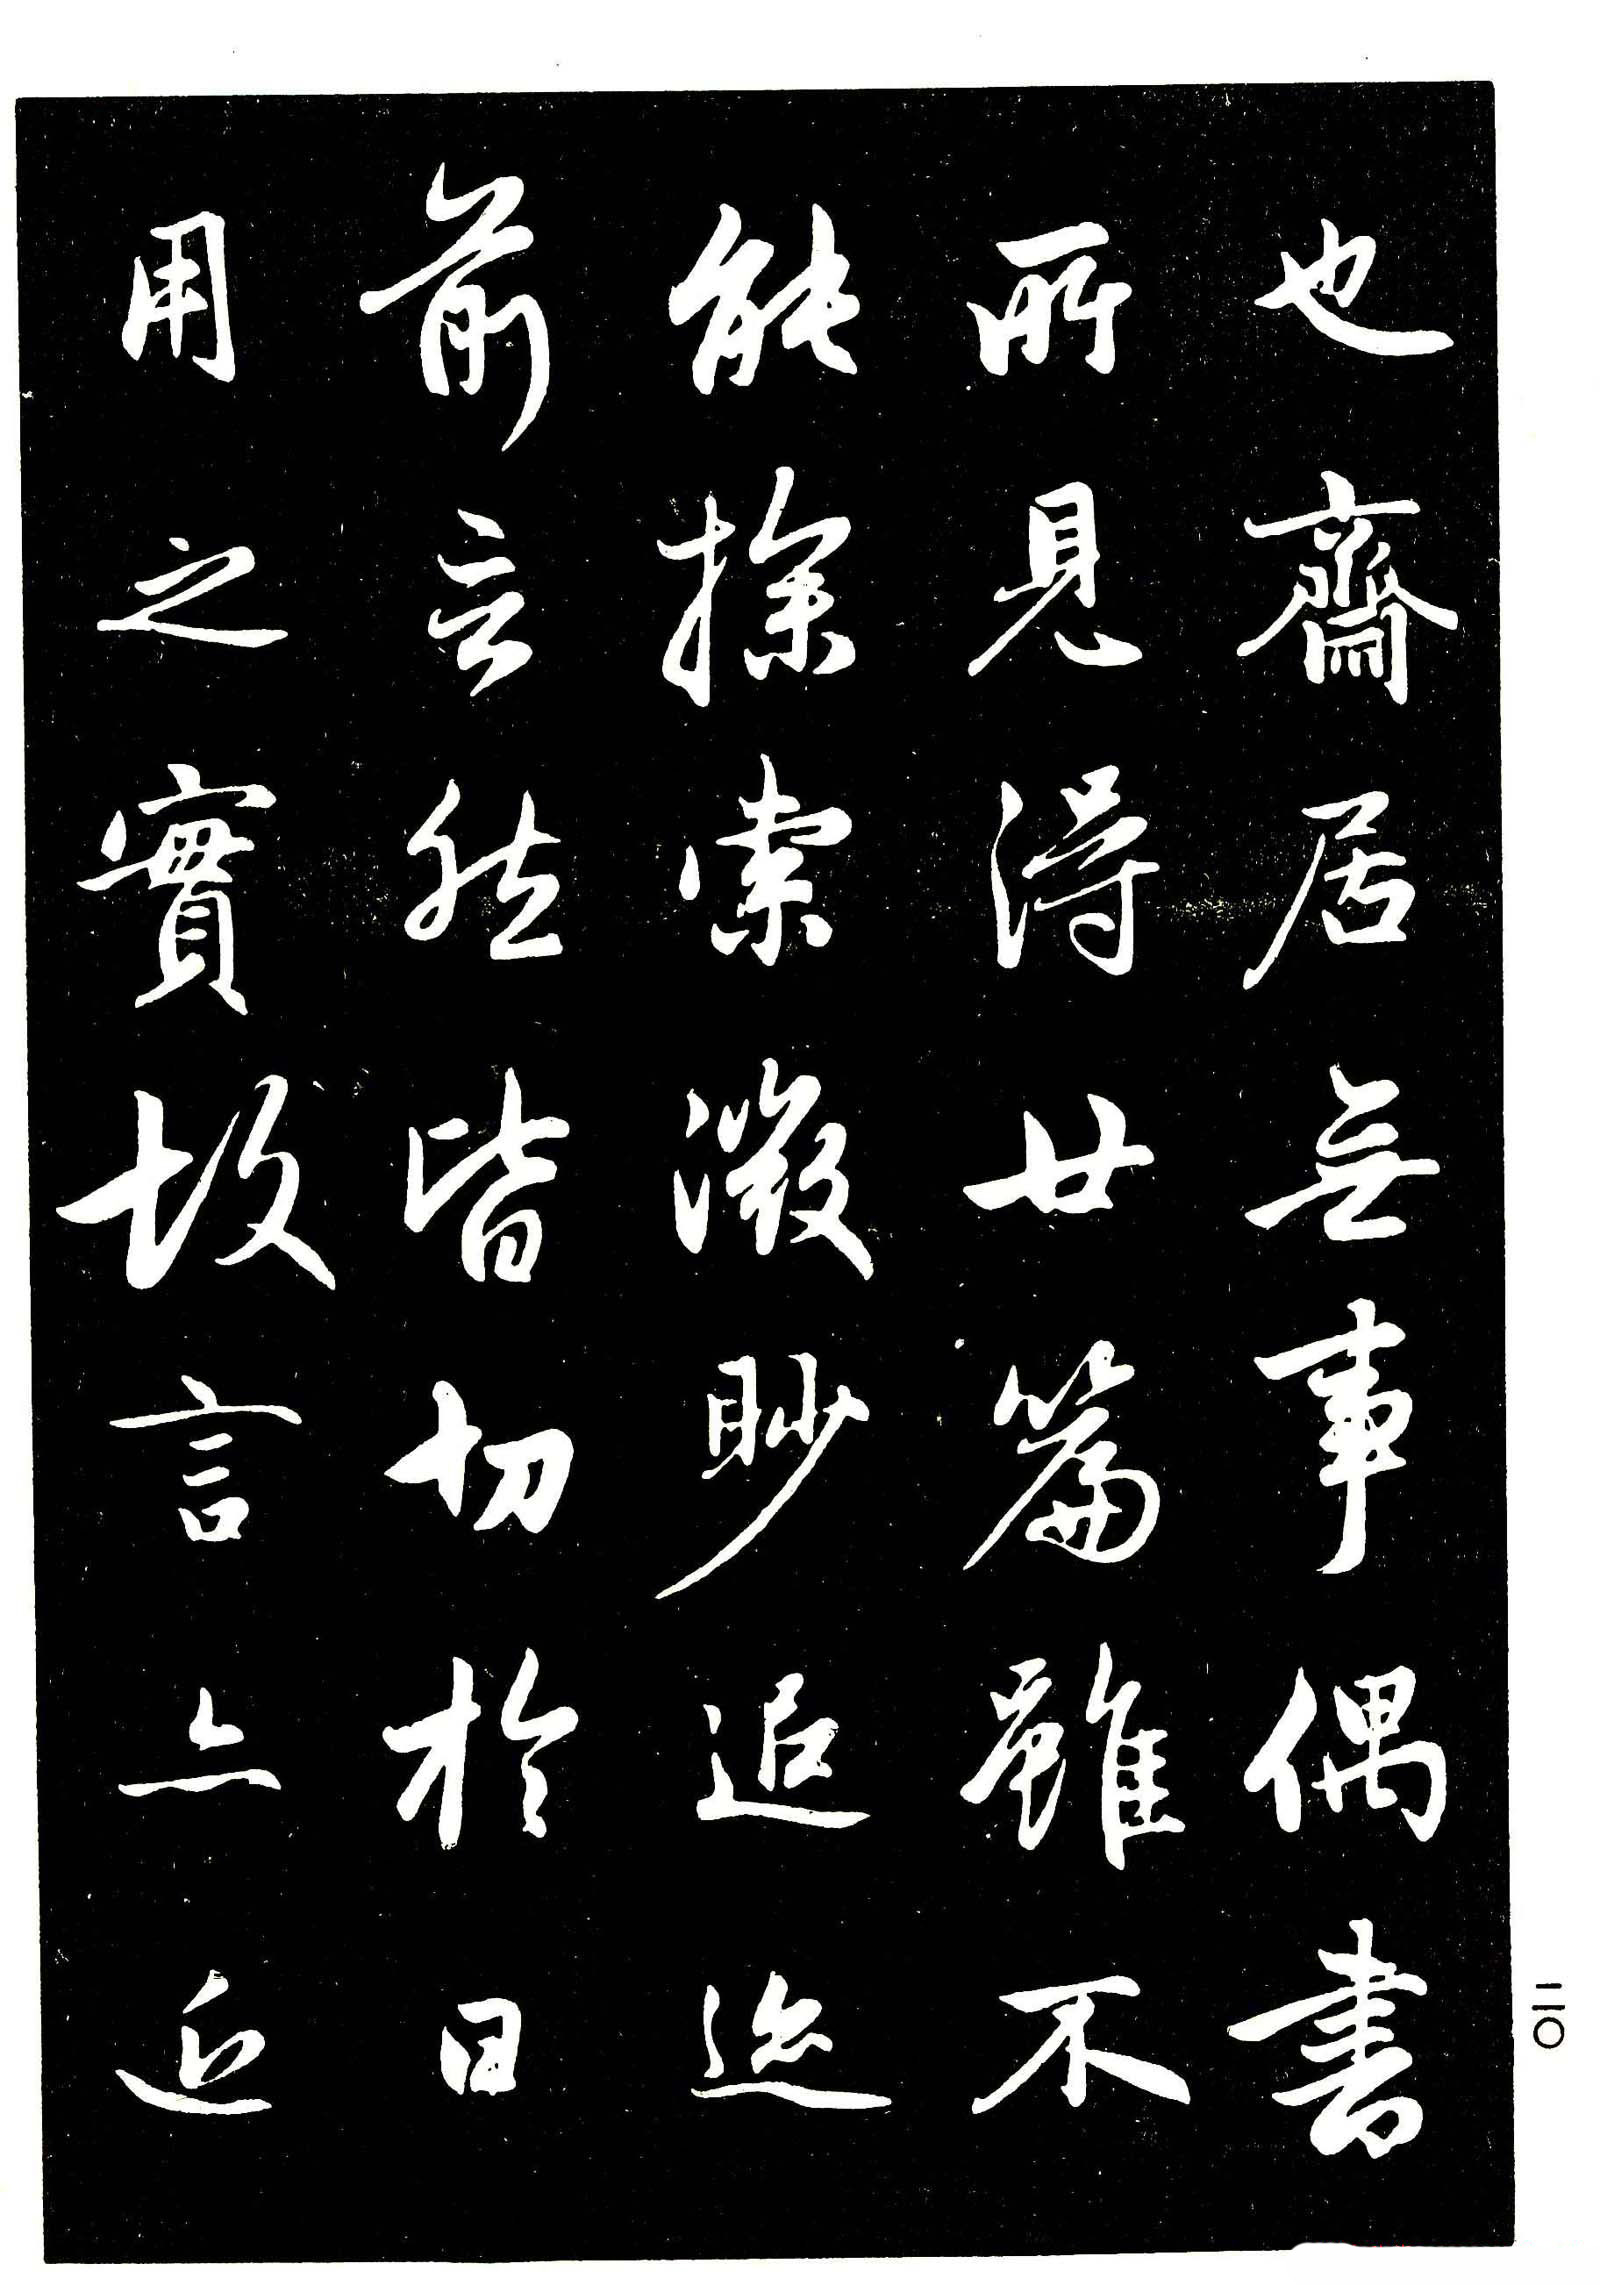 也齋居無事偶書
所見得廿篇雖不
能探索微眇追迹
前言然皆切於日
用之實故言亦近
二〇